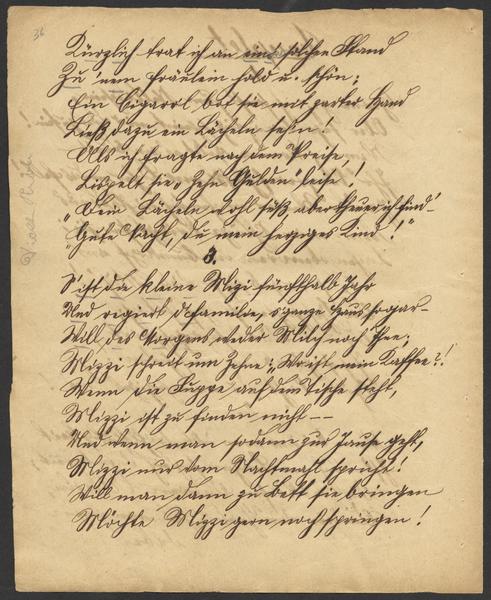 36
Kürzlich trat ich an eine solchen Stand
Zu 'nem Fräulein hold u. schön;
Ein Cigarrl bot sie mit zarter Hand
Ließ dazu ein Lächeln seh'n!
Als ich fragte nach dem Preise,
Lispelt sie „Zehn Gulden" leise!
„Dein Lächeln wohl süß, aber theuer ich find'
„Gute Nacht, du mein herziges Kind!"
3.
S'ist da kleine Mizi fünfthalb Jahr
Und regiert d'Familie, s'ganze Haus sogar –
Will des Morgens weder Milch noch Thee;
Mizzi schreit um Zehne: „Wo ist mein Kaffee?!
Wenn die Suppe auf dem Tische steht,
Mizzi ist zu finden nicht – –
Und wenn man sodann zur Jause geht,
Mizzi nur vom Nachtmahl spricht!
Will man dann zu Bett sie bringen
Möchte Mizzi gern noch springen!